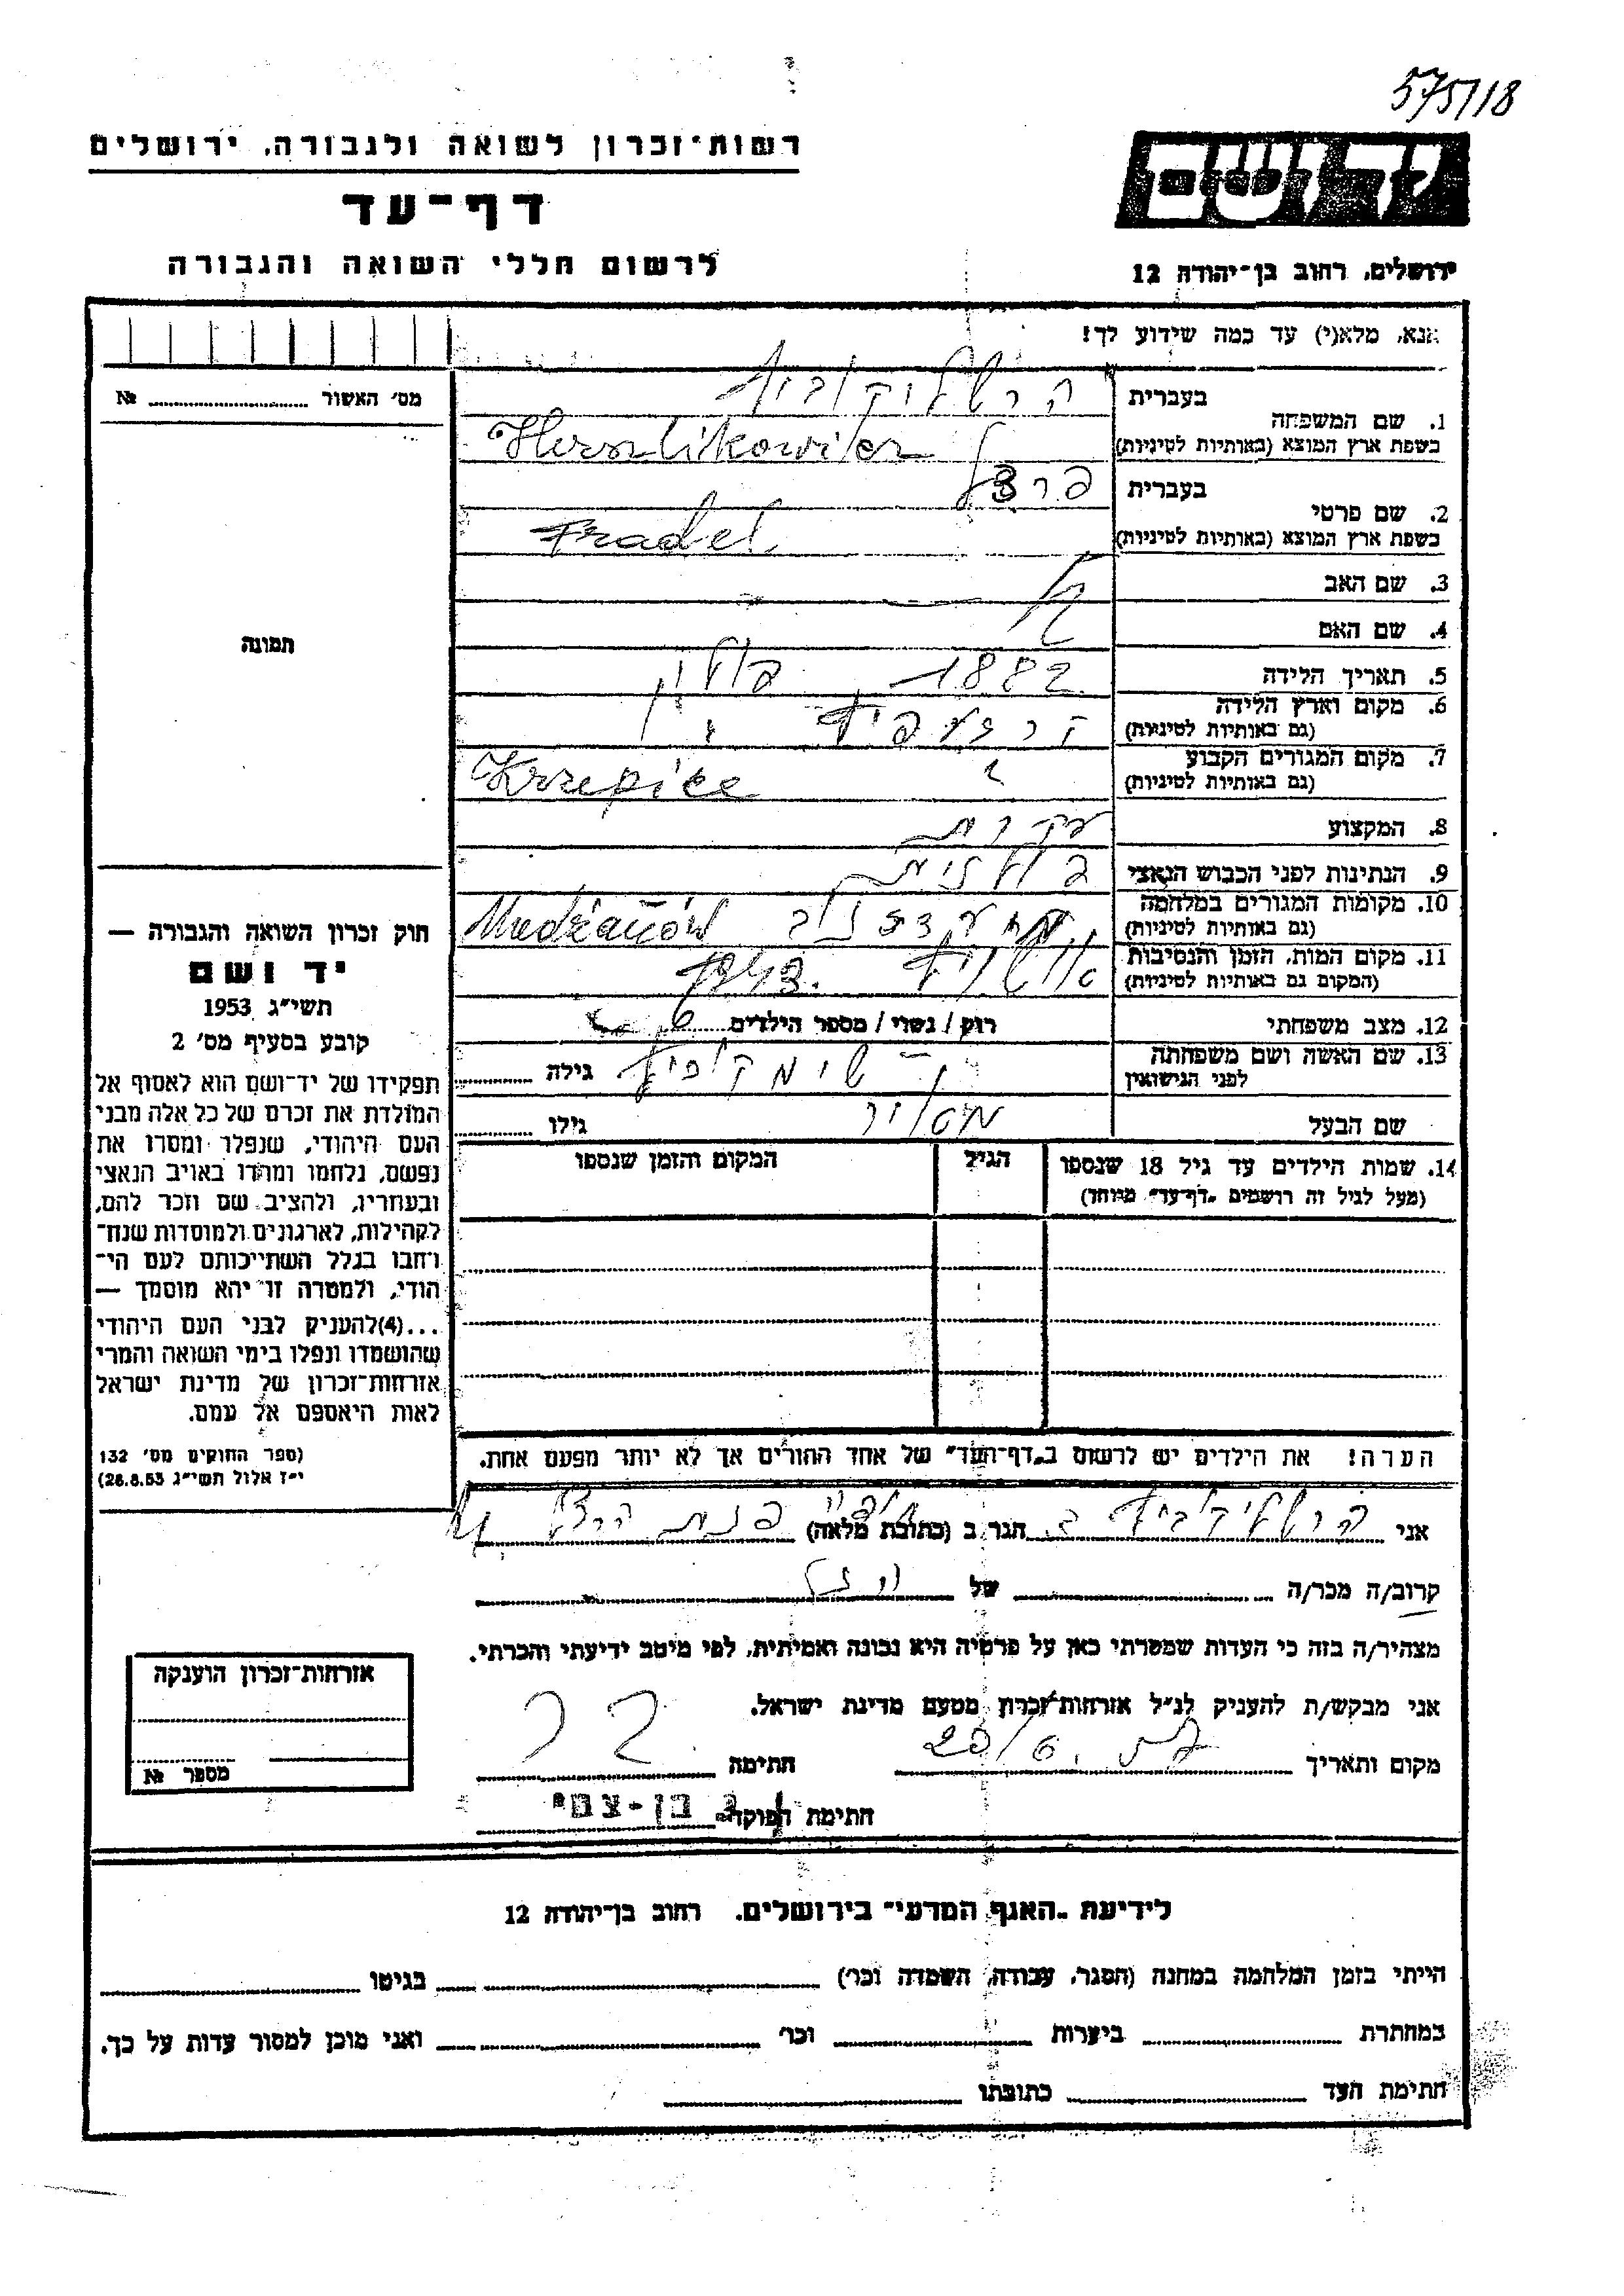 575/18
רשות־זכרון לשואה ולגבורה, ירושלים
דף־עד
לרשום חללי השואה והגבורה
יד ושם
ירושלים, רחוב בן־יהודה 12
אנא, מלא(י) עד כמה שידוע לך!
מס' האשור № 
תמונה
1. שם המשפחה
בעברית הרשליקוביץ
בשפת ארץ המוצא (באותיות לטיניות) Herszlikowicz
2. שם פרטי
בעברית
בשפת ארץ המוצא (באותיות לטיניות) Fradel
3. שם האב
4. שם האם
5. תאריך הלידה 1882 פולין
6. מקום וארץ הלידה
(גם באותיות לטיניות)
7. מקום המגורים הקבוע
(גם באותיות לטיניות) Krzepice
8. המקצוע עקרת
9. הנתינות לפני הכבוש הנאצי פולנית
10. מקומות המגורים במלחמה
(גם באותיות לטיניות)
11. מקום המות, הזמן והנסיבות אושויץ 1943
(המקום גם באותיות לטיניות)
12. מצב משפחתי רוק / נשוי / מספר הילדים 6
13. שם האשה ושם משפחתה
לפני הנישואין גילה
שם הבעל מאיר גילו
14. שמות הילדים עד גיל 18 שנספו הגיל המקום והזמן שנספו
(מעל לגיל זה רושמים „דף־עד” מיוחד)
הערה! את הילדים יש לרשום ב„דף־העד” של אחד ההורים אך לא יותר מפעם אחת.
חוק זכרון השואה והגבורה —
יד ושם
תשי"ג 1953
קובע בסעיף מס' 2
תפקידו של יד־ושם הוא לאסוף אל
המולדת את זכרם של כל אלה מבני
העם היהודי, שנפלו ומסרו את
נפשם, נלחמו ומרדו באויב הנאצי
ובעוזריו, ולהציב שם וזכר להם,
לקהילות, לארגונים ולמוסדות שנח־
רבו בגלל השתייכותם לעם הי־
הודי, ולמטרה זו יהא מוסמך —
...(4)להעניק לבני העם היהודי
שהושמדו ונפלו בימי השואה והמרי
אזרחות־זכרון של מדינת ישראל
לאות היאספם אל עמם.
(ספר החוקים מס' 132
י"ז אלול תשי"ג 28.8.53)
אני הרשליקוביץ הגר ב (כתובת מלאה)
קרוב/ה מכר/ה של
מצהיר/ה בזה כי העדות שמסרתי כאן על פרטיה היא נכונה ואמיתית, לפי מיטב ידיעתי והכרתי.
אני מבקש/ת להעניק לנ"ל אזרחות־זכרון מטעם מדינת ישראל.
מקום ותאריך 20/6 חתימה
חתימת הפוקד בן-צבי
אזרחות־זכרון הוענקה
מספר №
לידיעת „האגף המדעי” בירושלים. רחוב בן־יהודה 12
הייתי בזמן המלחמה במחנה (הסגר, עבודה, השמדה וכו') בגיטו
במחתרת ביערות וכו' ואני מוכן למסור עדות על כך.
חתימת העד כתובתו